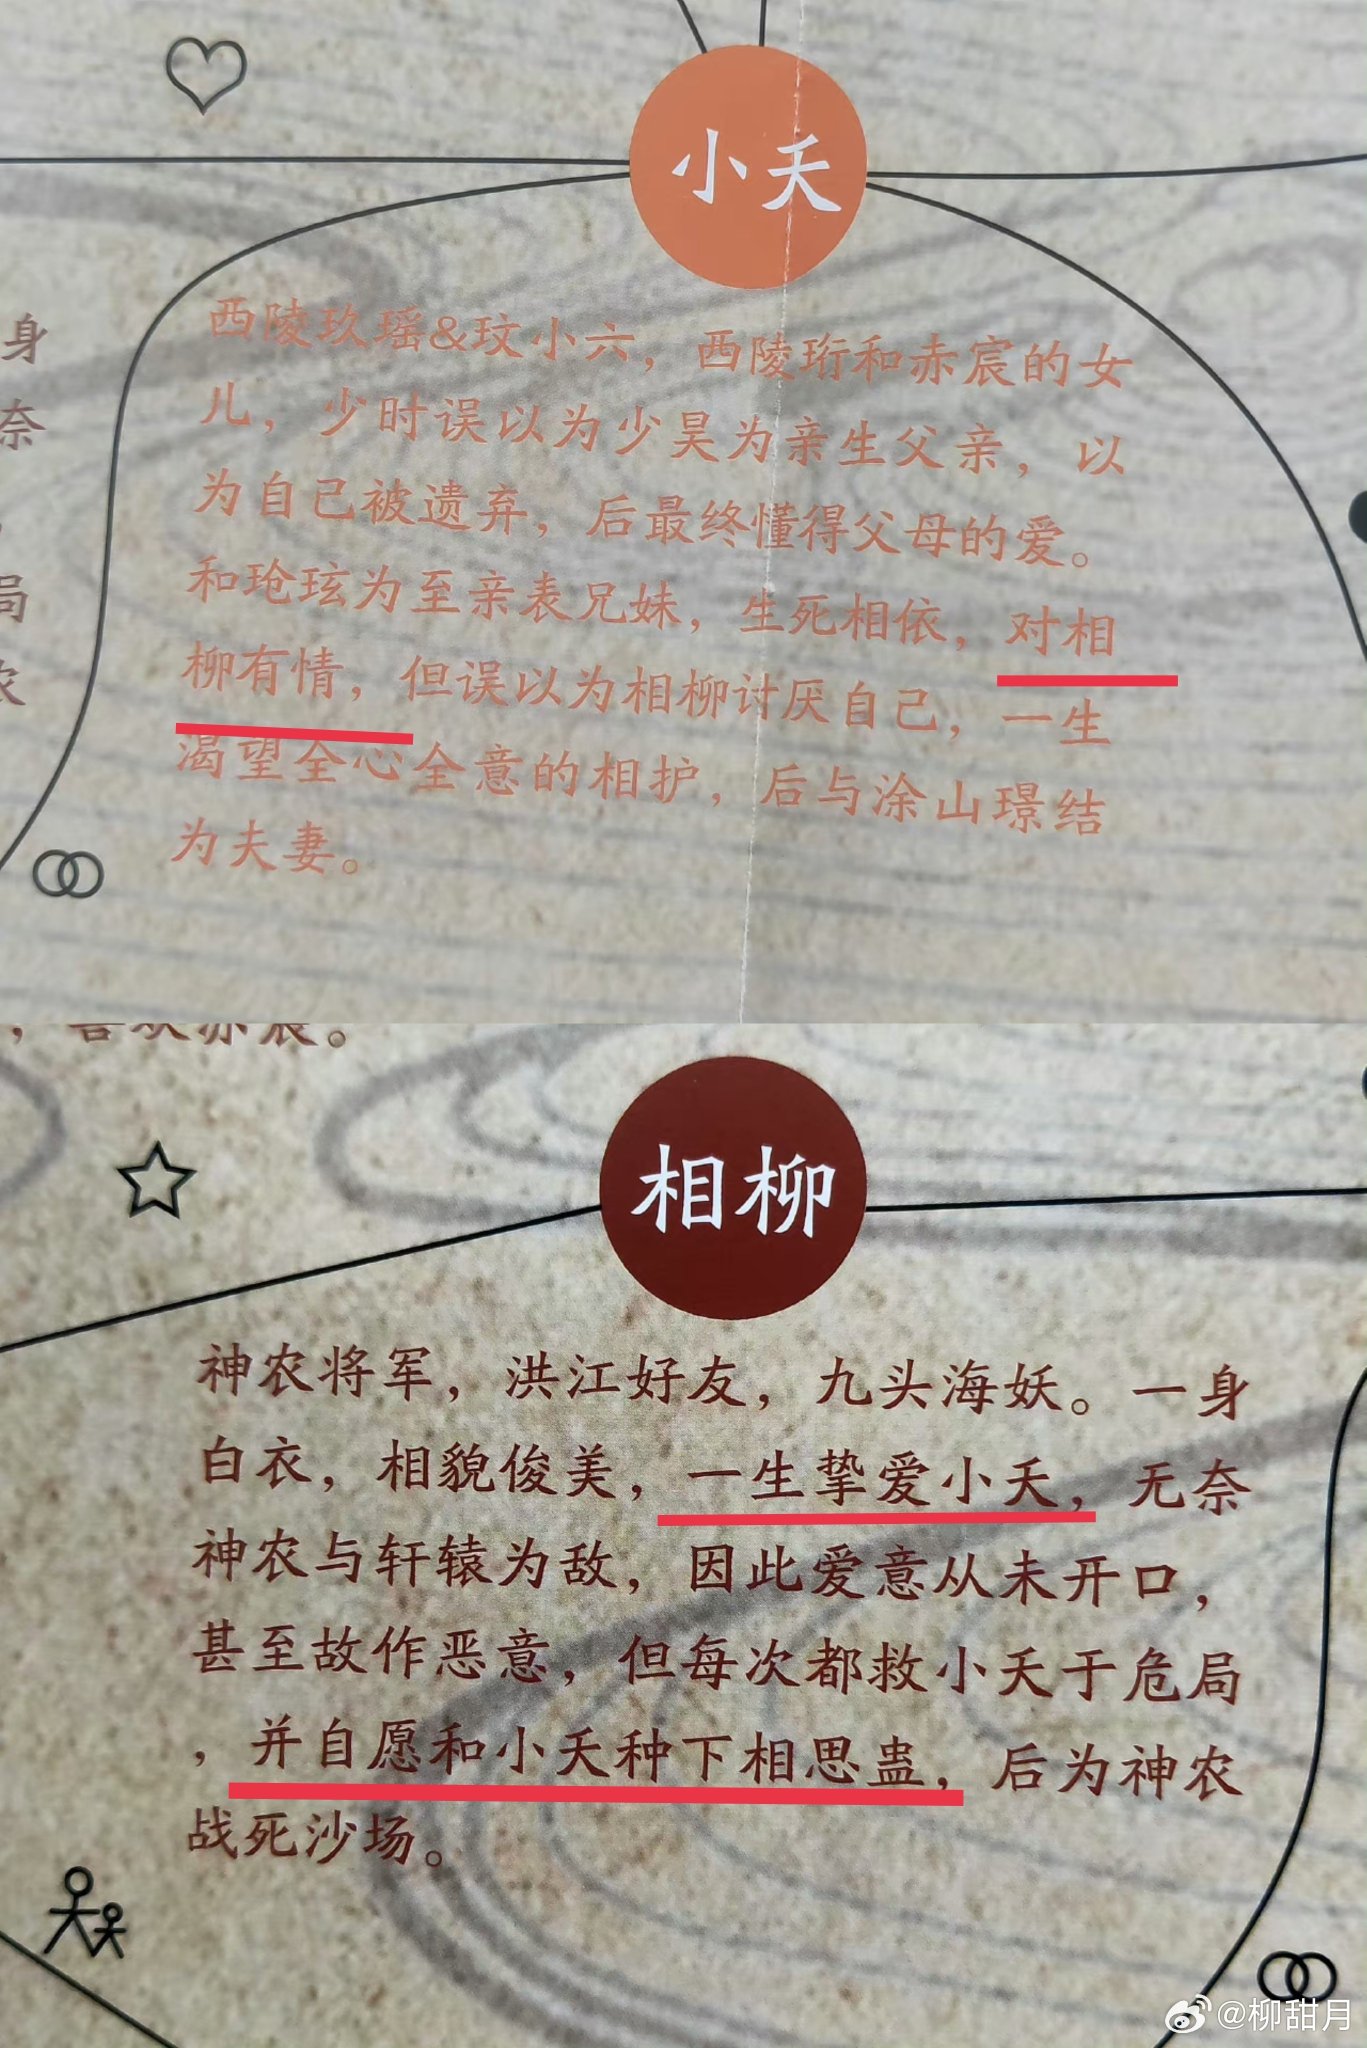 小夭
西陵玖瑶&玟小六，西陵珩和赤宸的女
儿，少时误以为少昊为亲生父亲，以
为自己被遗弃，后最终懂得父母的爱。
和玱玹为至亲表兄妹，生死相依，对相
柳有情，但误以为相柳讨厌自己，一生
渴望全心全意的相护，后与涂山璟结
为夫妻。
身
奈
，
局
农
相柳
神农将军，洪江好友，九头海妖。一身
白衣，相貌俊美，一生挚爱小夭，无奈
神农与轩辕为敌，因此爱意从未开口，
甚至故作恶意，但每次都救小夭于危局
，并自愿和小夭种下相思蛊，后为神农
战死沙场。
@柳甜月